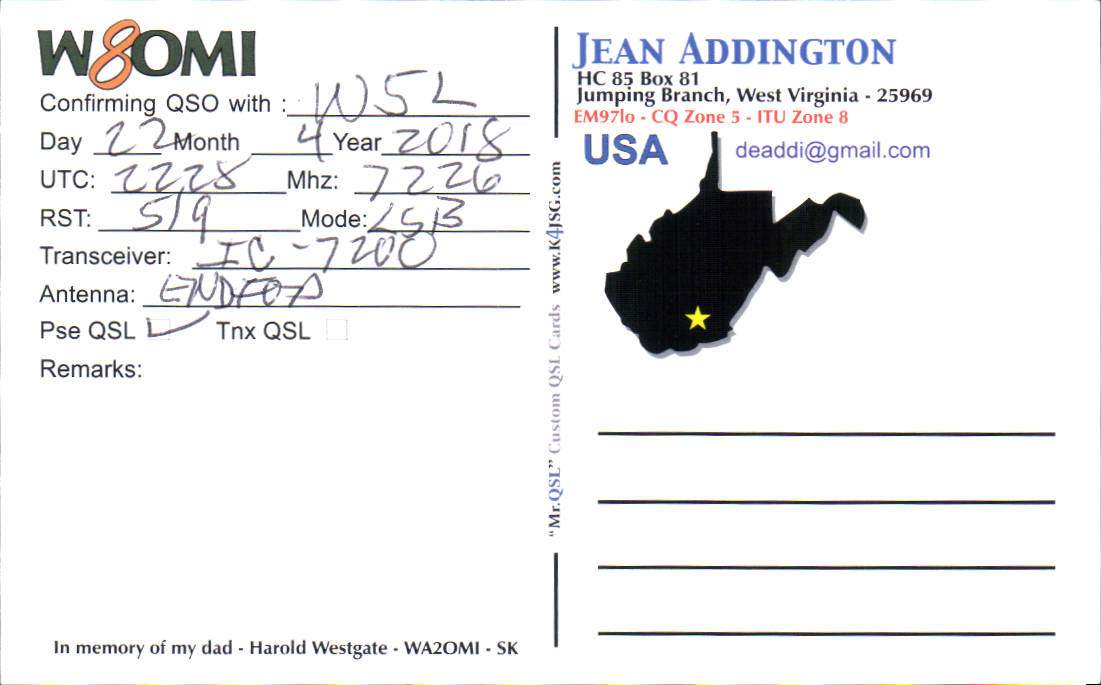 W8OMI
Confirming QSO with : W5L
Day 22 Month 4 Year 2018
UTC: 2228 Mhz: 7226
RST: 5/9 Mode: LSB
Transceiver: IC-7200
Antenna: ENDFED
Pse QSL Tnx QSL
Remarks:
In memory of my dad - Harold Westgate - WA2OMI - SK
"Mr.QSL" Custom QSL Cards www.K4JSG.com
JEAN ADDINGTON
HC 85 Box 81
Jumping Branch, West Virginia - 25969
EM97lo - CQ Zone 5 - ITU Zone 8
USA deaddi@gmail.com